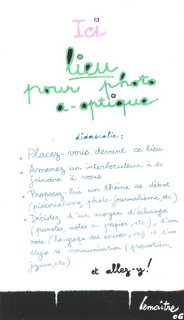 Ici
lieu
pour photo
a-optique
didascalie:
- Placez-vous devant ce lieu
- Amenez un interlocuteur à se
joindre à vous
- Proposez-lui un thème de débat
(pictorialisme, photo-journalisme, etc)
- Décidez d'un moyen d'échange
(paroles, notes en papier, etc), d'un
code (langage des sourds, etc) et d'un
style de communication (
etc)
et allez-y!
lemaître
06